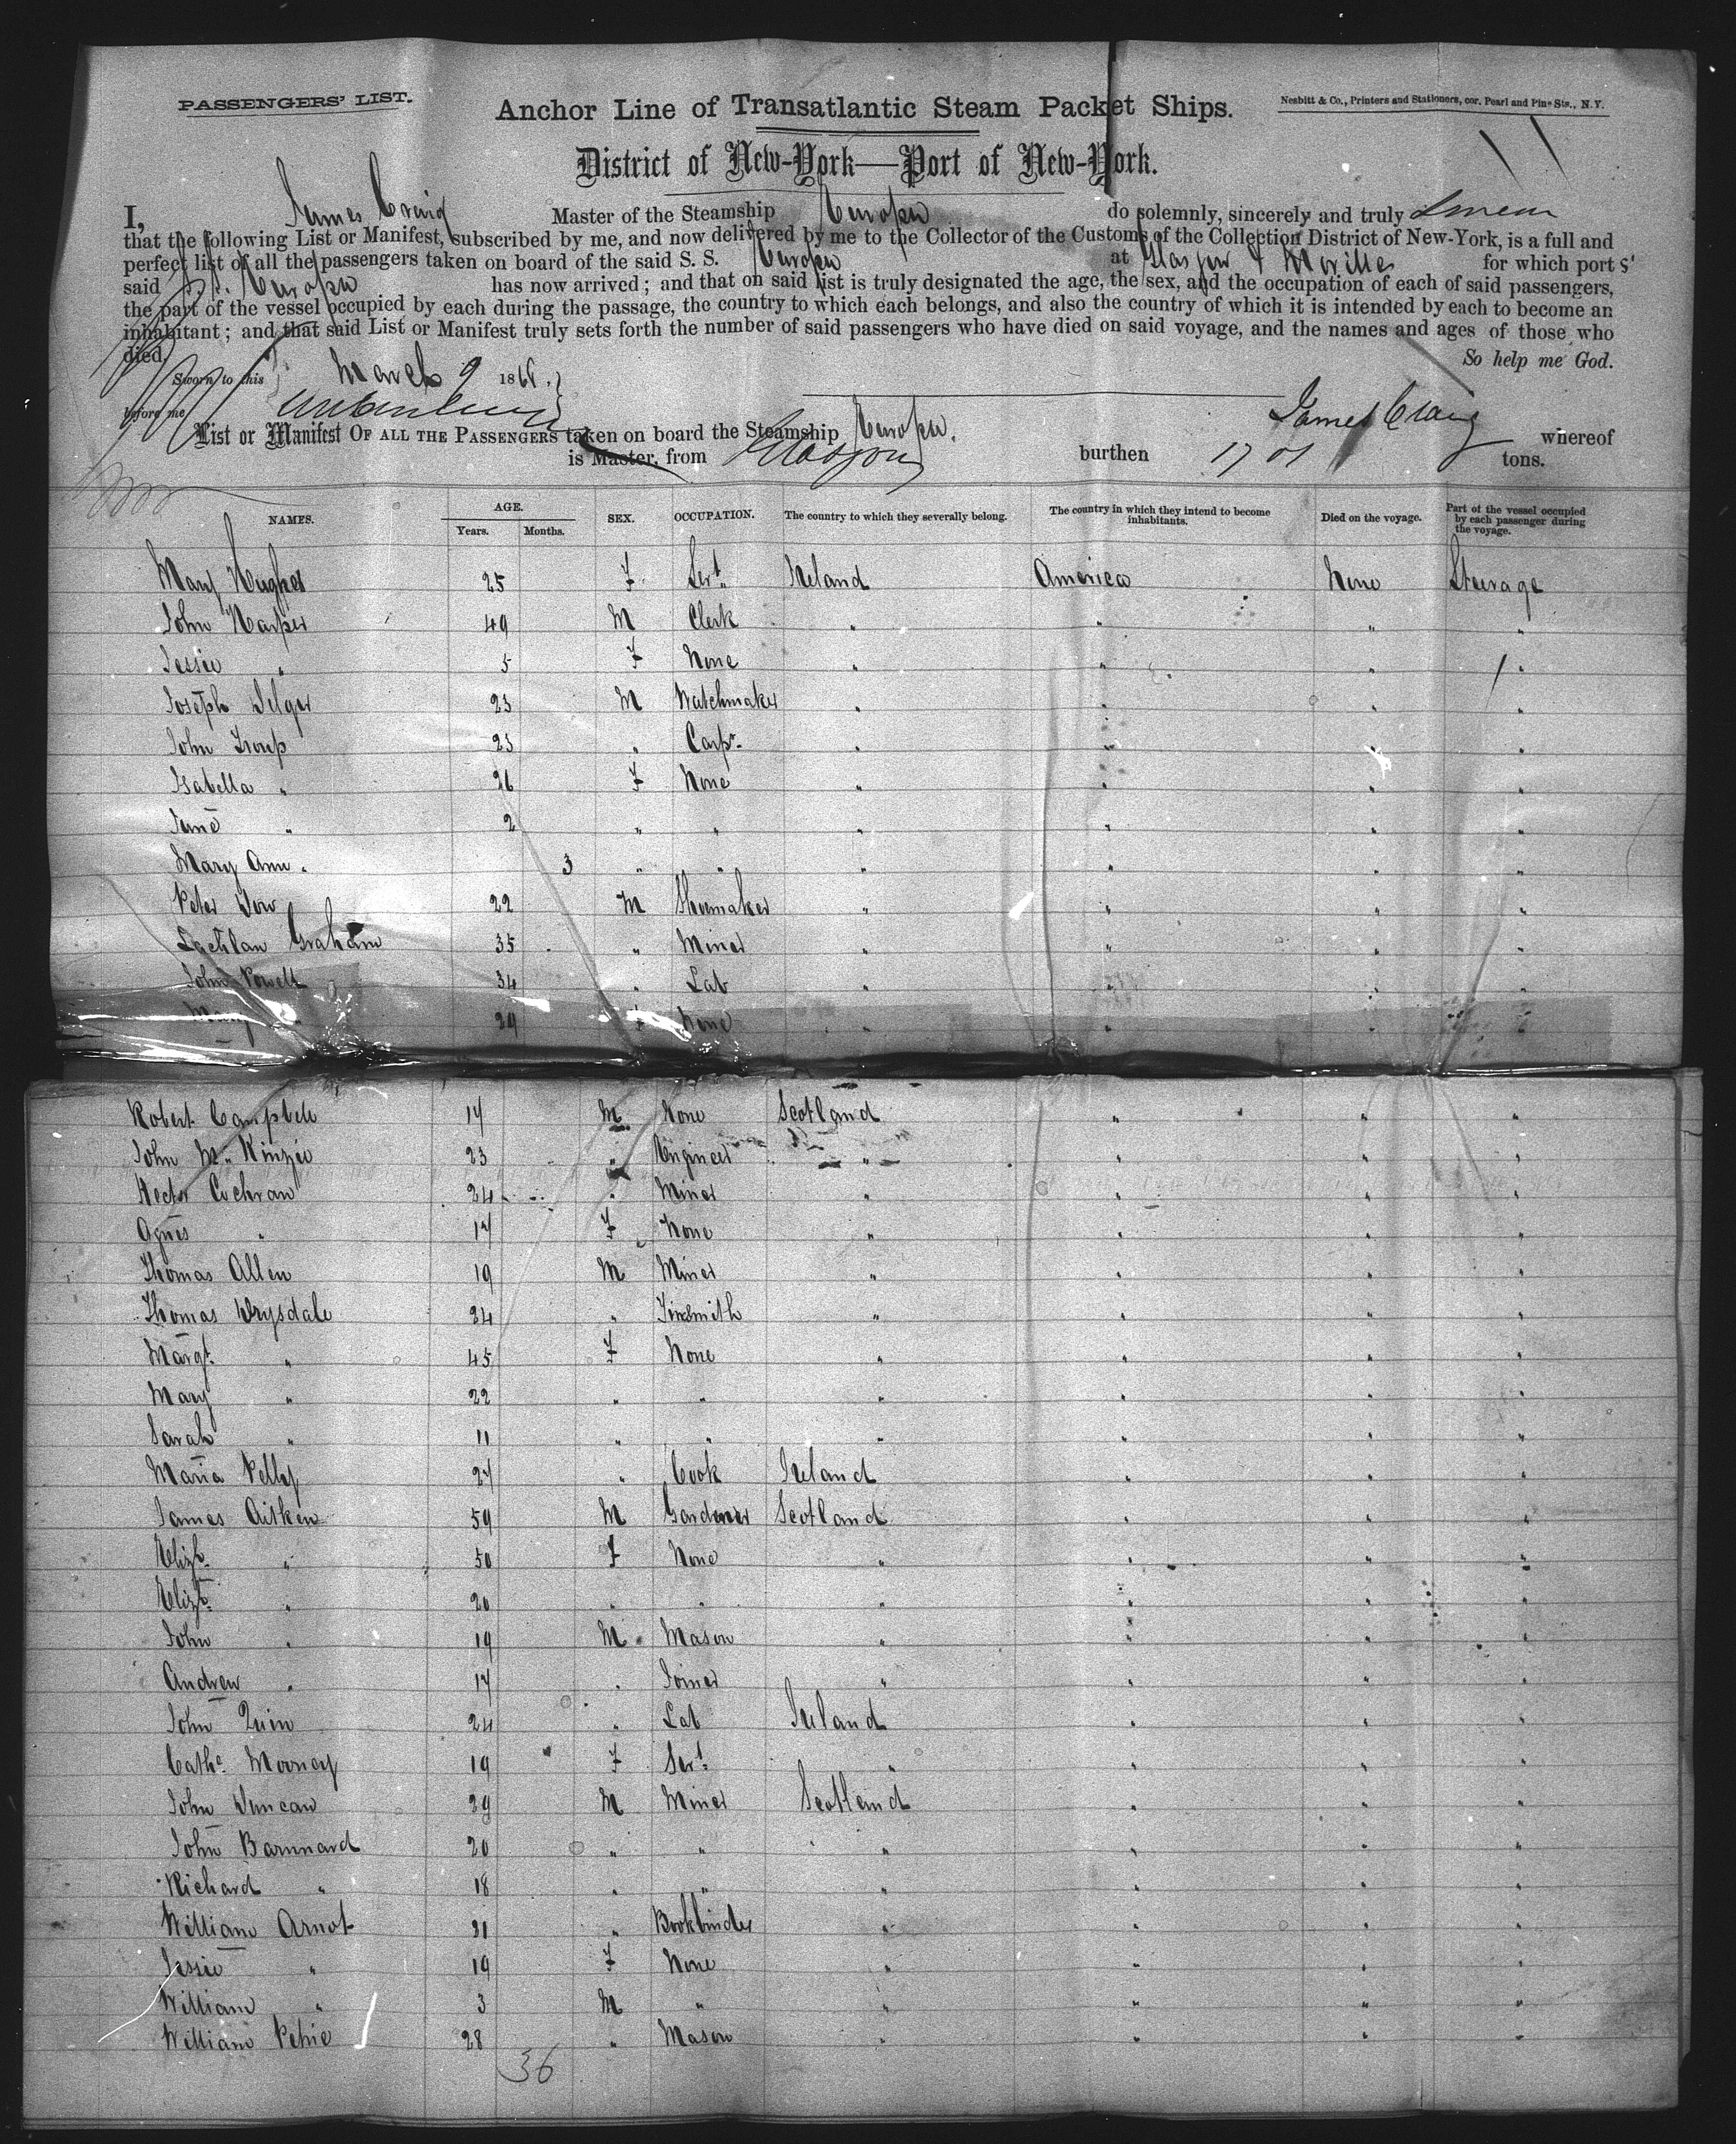 PASSENGERS' LIST.
Anchor Line of Transatlantic Steam Packet Ships.
Nesbitt & Co., Printers and Stationers, cor. Pearl and Pine Sts., N.Y.
District of New-York—Port of New-York.
I, James Craig Master of the Steamship Europa do solemnly, sincerely and truly Swear
that the following List or Manifest, subscribed by me, and now delivered by me to the Collector of the Customs of the Collection District of New-York, is a full and
perfect list of all the passengers taken on board of the said S. S. Europa at Glasgow & Moville for which port s
said S. S. Europa has now arrived; and that on said list is truly designated the age, the sex, and the occupation of each of said passengers,
the part of the vessel occupied by each during the passage, the country to which each belongs, and also the country of which it is intended by each to become an
inhabitant; and that said List or Manifest truly sets forth the number of said passengers who have died on said voyage, and the names and ages of those who
died. So help me God.
Sworn to this March 9 1868.
before me James Craig
List or Manifest OF ALL THE PASSENGERS taken on board the Steamship Europa. whereof
is Master, from Glasgow burthen 1701 tons.
NAMES. AGE. Years. Months. SEX. OCCUPATION. The country to which they severally belong. The country in which they intend to become inhabitants. Died on the voyage. Part of the vessel occupied by each passenger during the voyage.
Mary Hughes 25 F Sert. Ireland America None Steerage
John Harper 49 M Clerk " " " "
Jessie " 5 F None " " " "
Joseph 23 M Watchmaker " " " "
John Troup 23 " Carpr. " " " "
Isabella " 26 F None " " " "
Jane " 2 " " " " " "
Mary Ann " 3 " " " " " "
Peter Dow 22 M Shoemaker " " " "
Lachlan Graham 35 " Miner " " " "
John Powell 34 " Lab " " " "
Mary " 29 F None " " " "
Robert Campbell 17 M None Scotland " " "
John McKinzie 23 " Engineer " " " "
Hector Cochran 24 " Miner " " " "
Agnes " 17 F None " " " "
Thomas Allen 19 M Miner " " " "
Thomas Drysdale 24 " Tinsmith " " " "
Margt. " 45 F None " " " "
Mary " 22 " " " " " "
Sarah " 11 " " " " " "
Maria 27 " Cook Ireland " " "
James Aitken 59 M Gardener Scotland " " "
Elizh. " 50 F None " " " "
Elizh. " 20 " " " " " "
John " 19 M Mason " " " "
Andrew " 17 " Joiner " " " "
John Quin 24 " Lab Ireland " " "
Cathe. Mooney 19 F Sert. " " " "
John Duncan 29 M Miner Scotland " " "
John Barnnard 20 " " " " " "
Richard " 18 " " " " " "
William Arnot 21 " Bookbinder " " " "
Jessie " 19 F None " " " "
William " 3 M " " " " "
William Petrie 28 " Mason " " " "
36